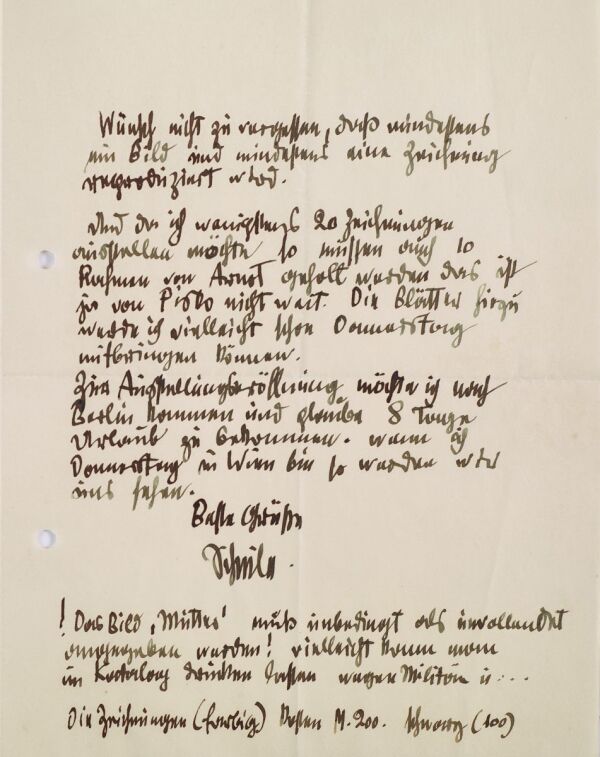 Wünsch nicht zu vergessen, daß mindestens
ein Bild und mindestens eine Zeichnung
reproduziert wird.
Und da ich wenigstens 20 Zeichnungen
ausstellen möchte so müssen auch 10
Rahmen von Arnot geholt werden das ist
ja von Pisko nicht weit. Die Blätter hiezu
werde ich vielleicht schon Donnerstag
mitbringen können.
Zur Ausstellungseröffnung möchte ich nach
Berlin kommen und glaube 8 Tage
Urlaub zu bekommen. wenn ich
Donnerstag in Wien bin so werden wir
uns sehen.
Beste Grüße
Schiele.
! Das Bild ‚Mutter' muß unbedingt als unvollendet
angegeben werden! vielleicht kann man
im Katalog drucken lassen wegen Militär u...
Die Zeichnungen (farbig) kosten M. 200. schwarz (100)